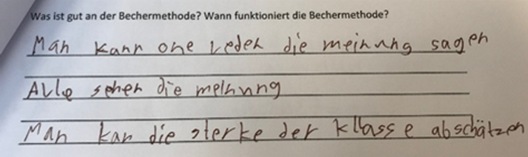 Was ist gut an der Bechermethode? Wann funktioniert die Bechermethode?
Man kann one reden die meinung sagen
Alle sehen die meinung
Man kan die sterke der kllasse abschätzen